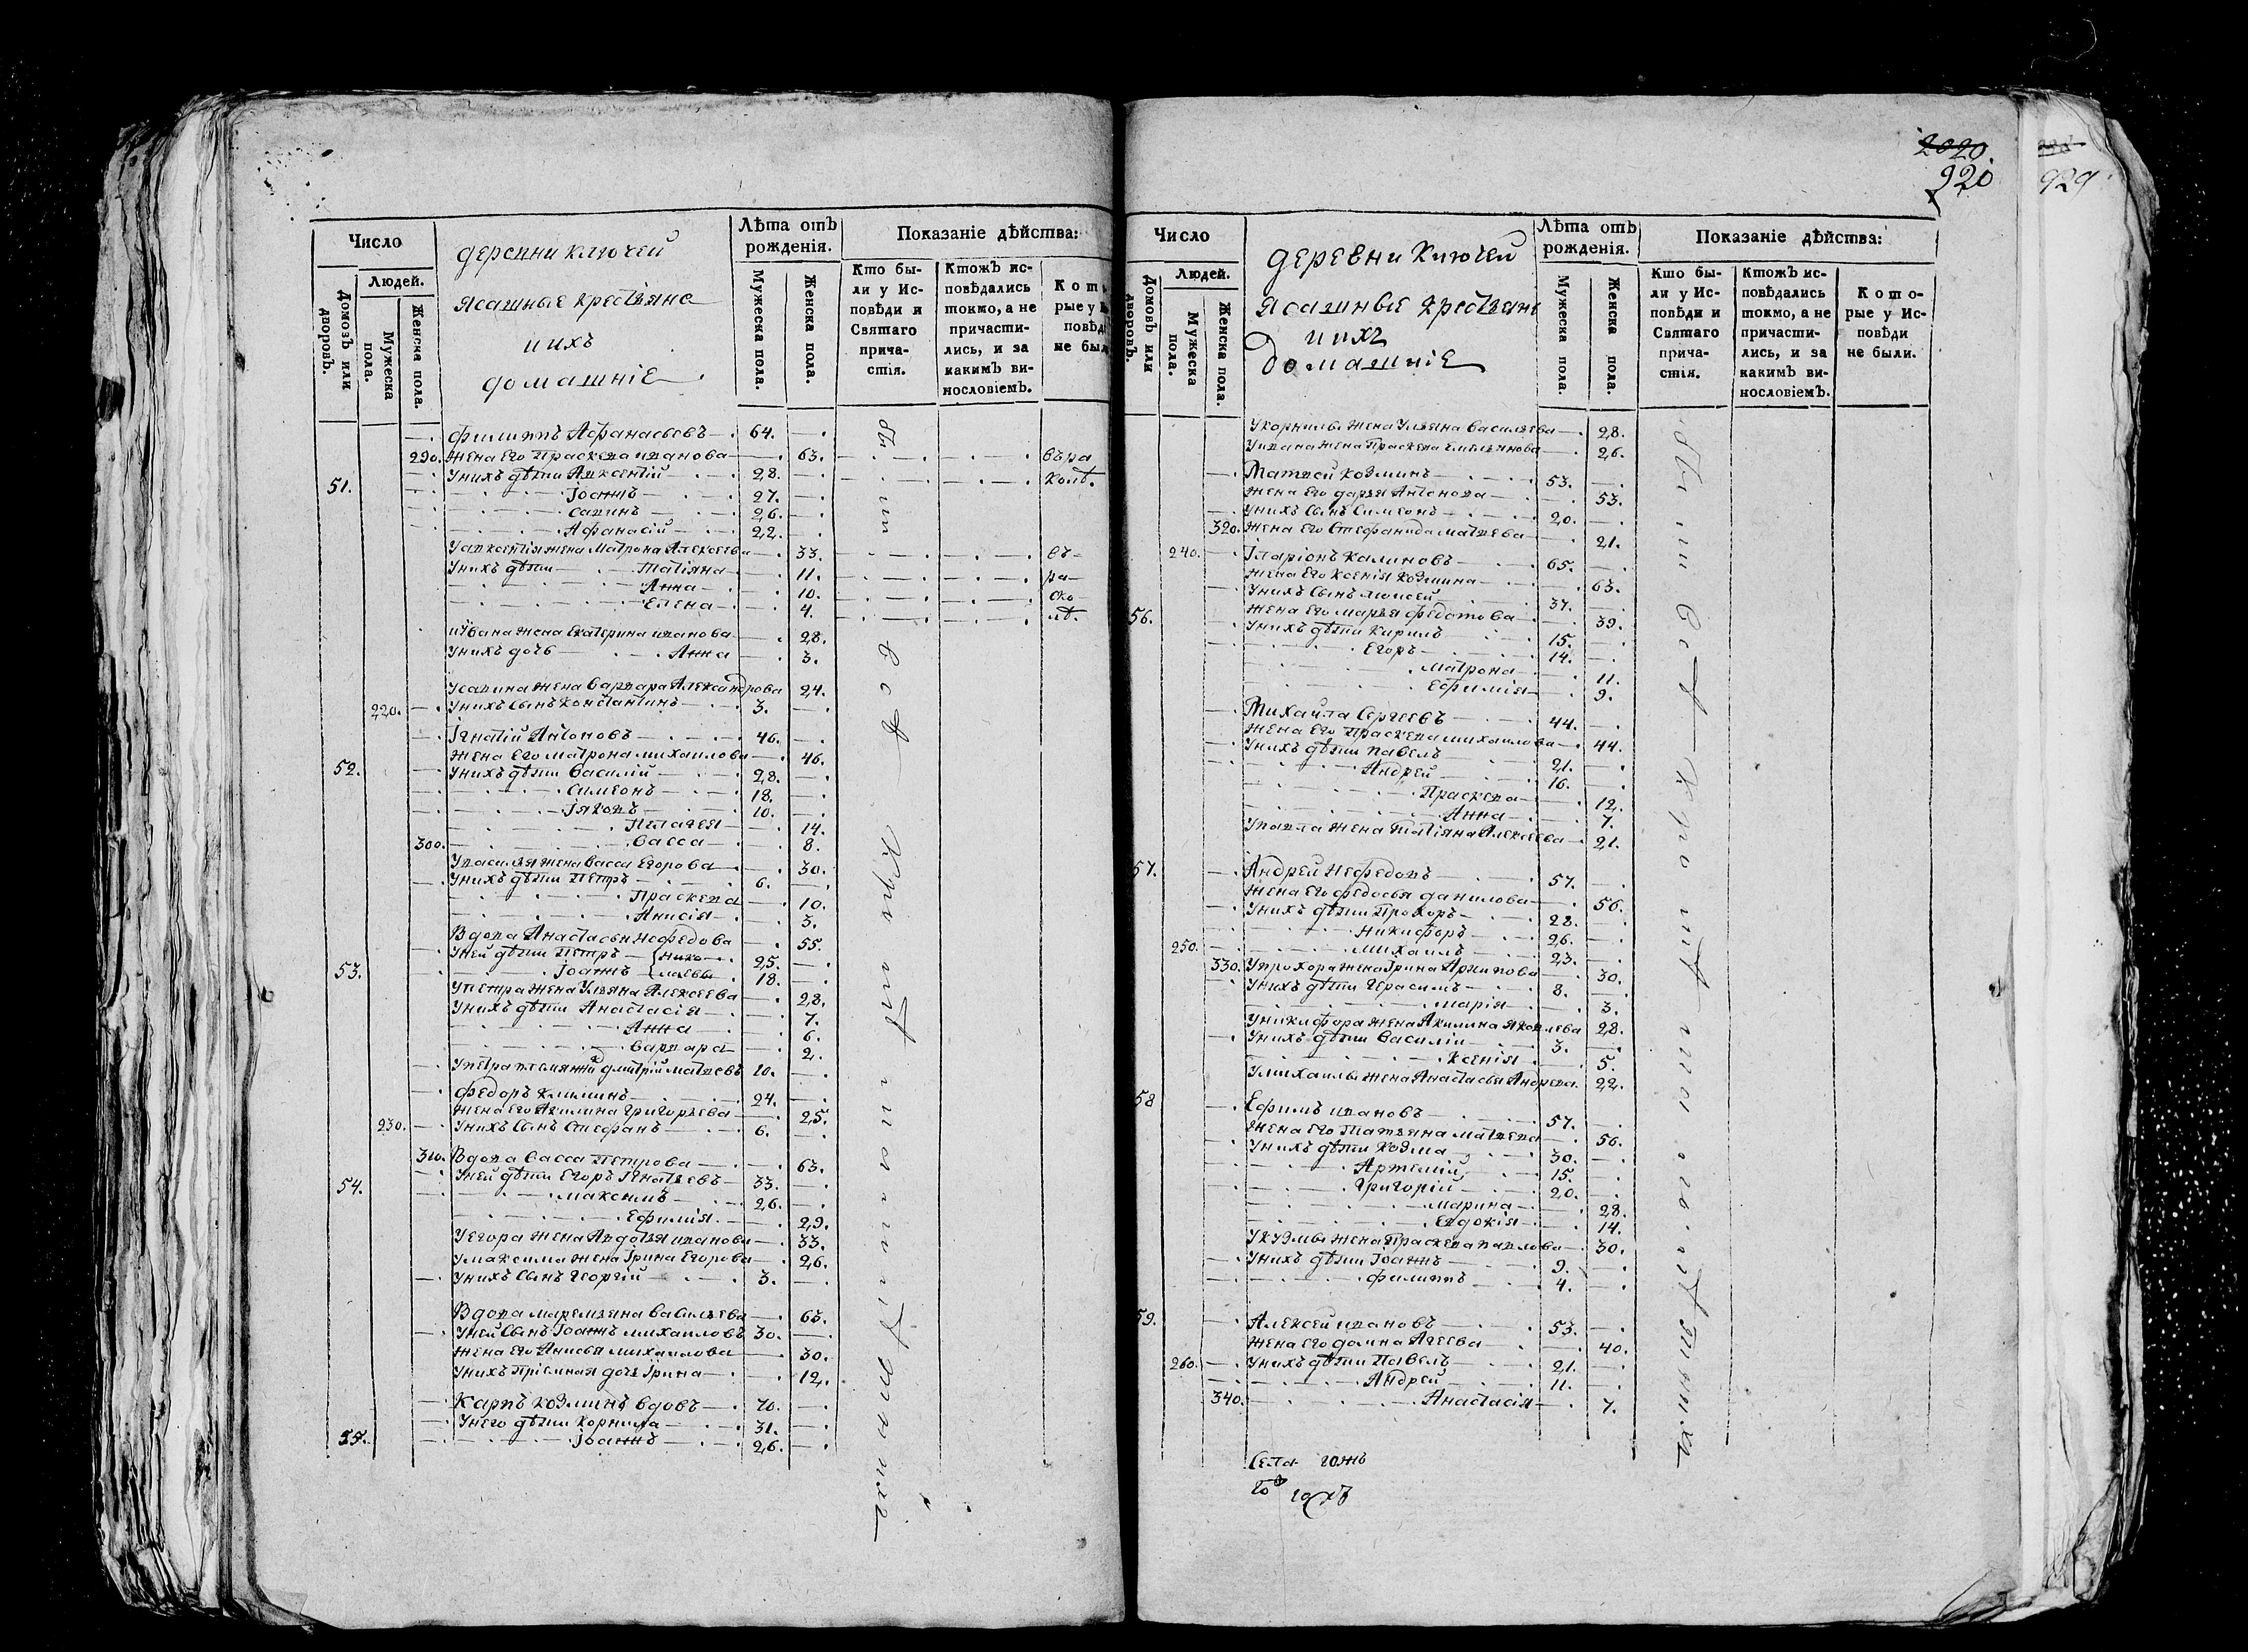 2020.
920
929
Число
Лѣта отъ рожденія.
Показаніе дѣйства:
Домовъ или дворовъ.
Людей.
Мужеска пола.
Женска пола.
деревни ключей
ясашные крестьяне
и ихъ
домашніе
Мужеска пола.
Женска пола.
Кто были у Исповѣди и Святаго причастія.
Ктожъ исповѣдались токмо, а не причастились, и за какимъ винословіемъ.
филиппъ Афанасьевъ 64.
290. жена его Праскева иванова 63. въра
51. у нихъ дѣти Авксентій 28. Колѣ.
Іоаннъ 27.
Савинъ 26.
Афанасій 22.
У авксентія жена Матрона Алексеева 33. въ-
У нихъ дѣти Татіяна 11. ра-
Анна 10. ско-
Елена 4. лѣ.
У ивана жена Екатерина иванова 28.
У нихъ дочь Анна 3.
У савина жена Варвара Александрова 24.
220. У нихъ сынъ Константинъ 3.
Ігнатій Антоновъ 46.
жена его матрона михаилова 46.
52. У нихъ дѣти Василій 28.
Симеонъ 18.
Іяковъ 10.
Пелагея 14.
300. Васса 8.
У василья жена Васса Егорова 30.
У нихъ дѣти Петръ 6.
Праскева 10.
Анисія 3.
Вдова Анастасья Нефедова 55.
У ней дѣти Петръ нико- 25.
53. Іоаннъ лаевы 18.
У петра жена Ульяна Алексеева 28.
У нихъ дѣти Анастасія 7.
Анна 6.
Варвара 2.
У петра племянникъ дмитрій матвеевъ 10.
федоръ Климинъ 24.
жена его Акилина Григорьева 25.
230. У нихъ сынъ Стефанъ 6.
310. Вдова Васса Петрова 63.
54. У ней дѣти Егоръ Ігнатьевъ 33.
максимъ 26.
Ефимія 29.
У егора жена Авдотья иванова 33.
У максима жена Ірина Егорова 26.
У нихъ сынъ Георгій 3.
Вдова маремьяна Васильева 63.
У ней сынъ Іоаннъ михаиловъ 30.
жена его Анисья михаилова 30.
У нихъ пріемная дочь Ірина 12.
Карпъ козминъ вдовъ 70.
У него дѣти корнила 31.
55. Іоаннъ 26.
Число
Лѣта отъ рожденія.
Показаніе дѣйства:
Домовъ или дворовъ.
Людей.
Мужеска пола.
Женска пола.
деревни Ключей
ясашныя крестьяне
и ихъ
домашніе
Мужеска пола.
Женска пола.
Кто были у Исповѣди и Святаго причастія.
Ктожъ исповѣдались токмо, а не причастились, и за какимъ винословіемъ.
Которые у Исповѣди не были.
У корнилы жена Ульяна Васильева 28.
У ивана жена Праскева Емельянова 26.
Матвей козминъ 53.
жена его дарья Антонова 53.
У нихъ сынъ Симеонъ 20.
320. жена его Стефанида матвеева 21.
240. Іларіонъ калиновъ 65.
жена его ксенія козмина 63.
У нихъ сынъ моисей 37.
56. жена его марья федотова 39.
У нихъ дѣти кирилъ 15.
Егоръ 14.
матрона 11.
Ефимія 9.
Михайла Сергеевъ 44.
жена его Праскева михаилова 44.
У нихъ дѣти павелъ 21.
Андрей 16.
Праскева 12.
Анна 7.
У павла жена татіяна Алексеева 21.
57. Андрей Нефедовъ 57.
жена его федосья данилова 56.
У нихъ дѣти Прохоръ 28.
Никифоръ 26.
250. михаилъ 23.
330. У прохора жена Ірина Архипова 30.
У нихъ дѣти Герасимъ 8.
марія 3.
У никифора жена Акилина яковлева 28.
У нихъ дѣти Василіи 3.
ксенія 5.
У михаилы жена Анастасья Андреева 22.
58 Ефимъ ивановъ 57.
жена его татьяна матвеева 56.
У нихъ дѣти козма 30.
Артемій 15.
Григорій 20.
марина 28.
Евдокія 14.
У кузмы жена Праскева павлова 30.
У нихъ дѣти Іоаннъ 9.
филиппъ 4.
59. Алексей ивановъ 53.
жена его домна Агеева 40.
260. У нихъ дѣти Павелъ 21.
Андрей 11.
340. Анастасія 7.